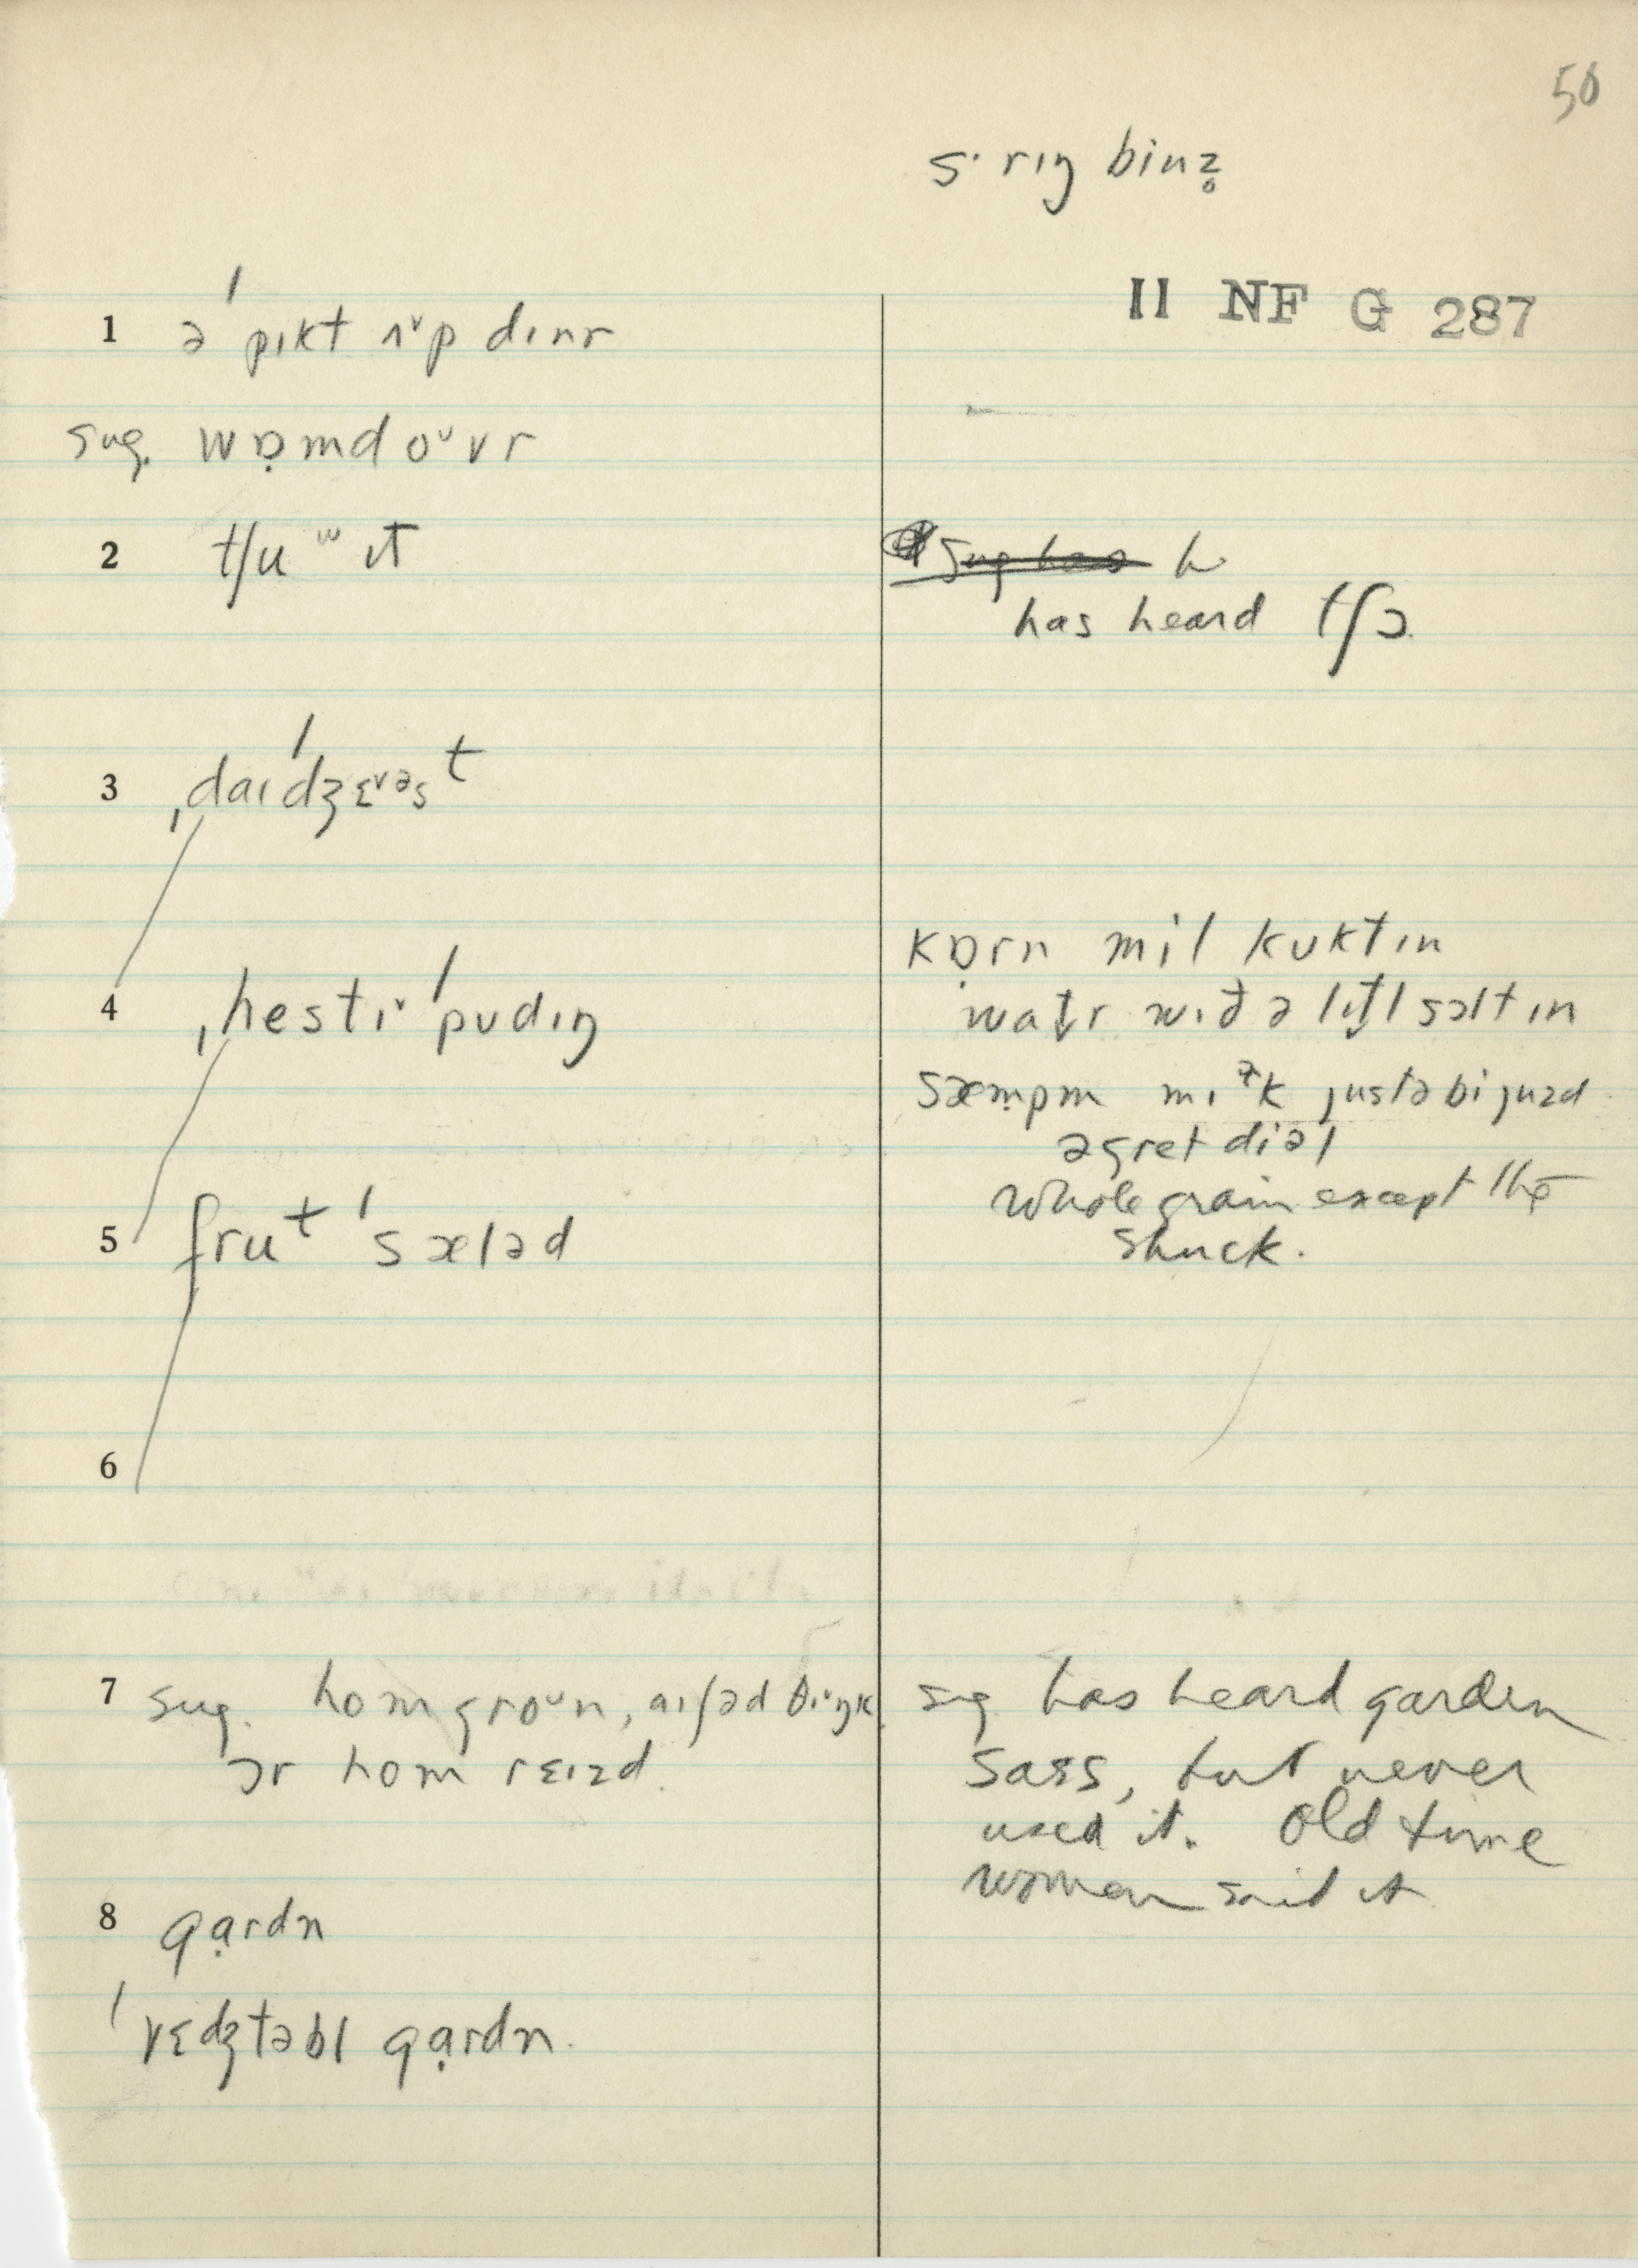 50
s· rɪŋ binz̥
II NF G 287
1 ə ˈpɪkt ʌᵛp dɪnr
sug. wɒ̣md oᵛvr
2 tʃuʷ ɪt
has heard tʃɔ.
3 ˌdaɪˈdʒɛᵛəsᵗ
4 ˌhestɪᵛ ˈpʊdɪŋ
kɒ̣rn mil kʊkt ɪn
wat̬r wɪð ə lɪt̬l sɔlt ɪn
sæmpm mɪɫk justəbi juzd
ə gret diəl
whole grain except the
shuck.
5 fruᵗ ˈsæləd
6
7 sug. hom groᵘn, aɪ ʃəd θɪᵛŋk
ɔr hom rɛɪzd.
sug has heard garden
sass, but never
used it. Old time
woman said it
8 gạrdn
ˈvɛdʒtəbl gạrdn.